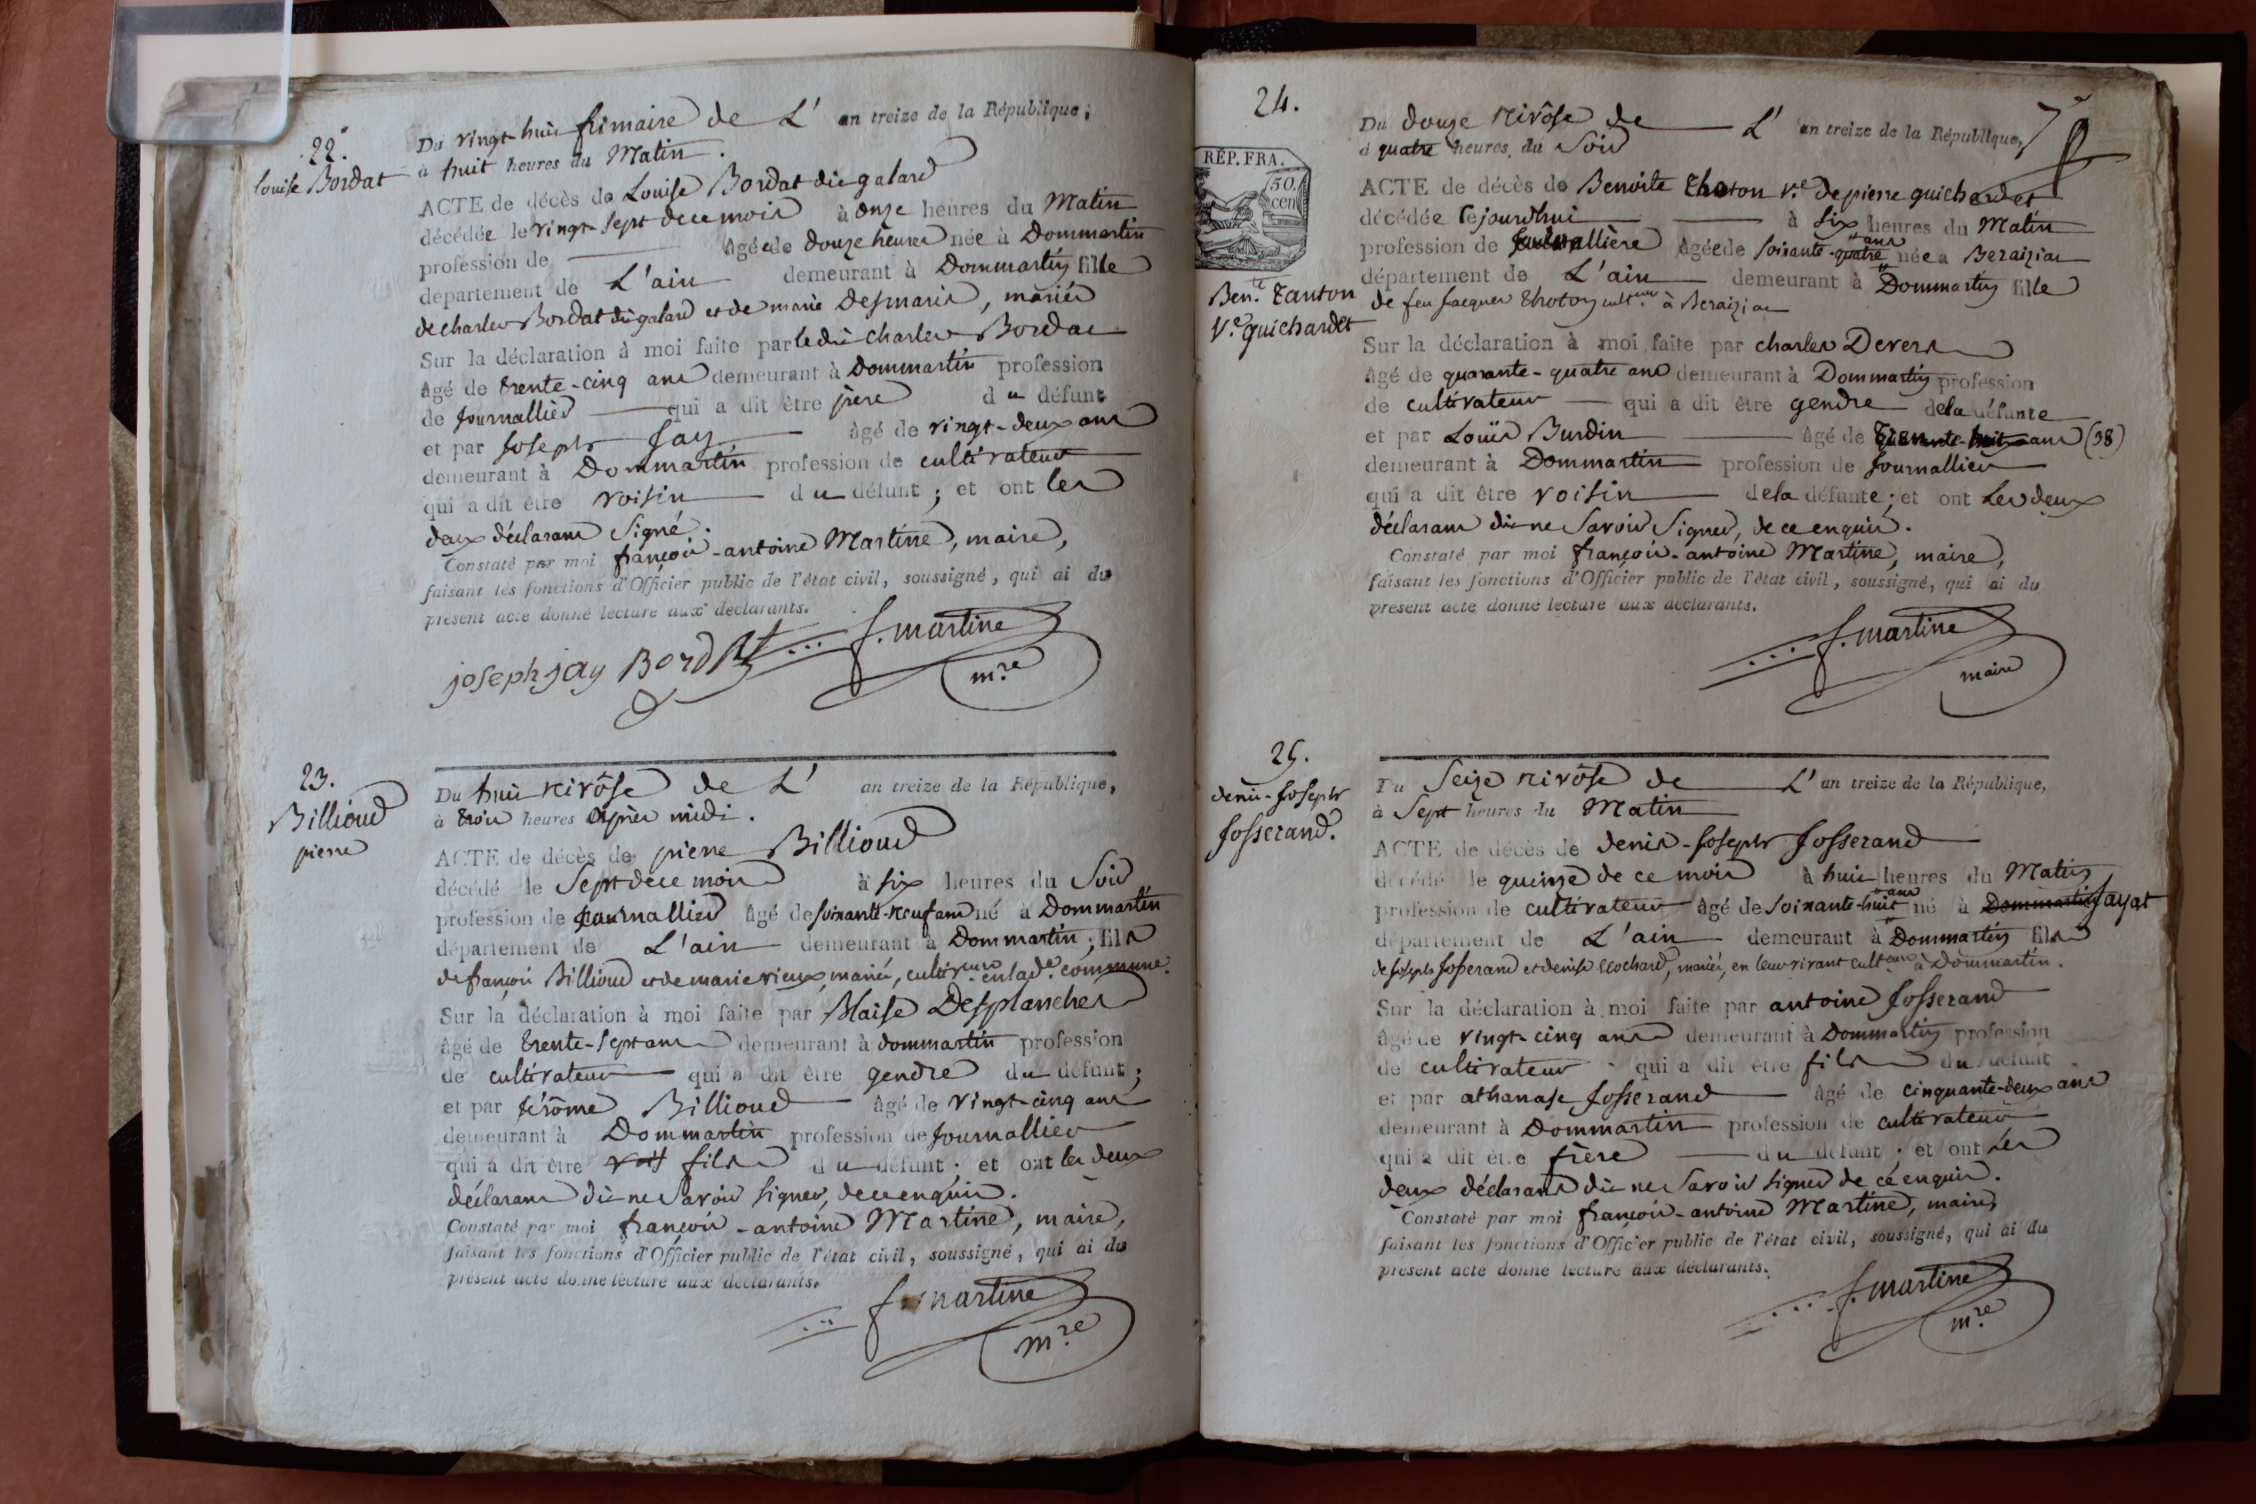 22.
Louise Bordat
Du vingt-huit frimaire de L' an treize de la République,
à huit heures du Matin.
ACTE de décès de Louise Bordat dit galard
décédée le vingt-sept de ce mois à onze heures du Matin
profession de âgée de douze heures née à Dommartin
département de L'ain demeurant à Dommartin fille
de charles Bordat dit galard et de marie Desmaris, mariés
Sur la déclaration à moi faite par le dit charles Bordat
âgé de trente-cinq ans demeurant à Dommartin profession
de Journallier qui a dit être père du défunt
et par Joseph Jay âgé de vingt-deux ans
demeurant à Dommartin profession de cultivateur
qui a dit être voisin du défunt ; et ont les
deux déclarans signé.
Constaté par moi françois-antoine Martine, maire,
faisant les fonctions d'Officier public de l'état civil, soussigné, qui ai du
présent acte donné lecture aux déclarants.
joseph jay Bordat f. martine
m.re
23.
Billioud
pierre
Du huit nivôse de L' an treize de la République,
à trois heures après midi.
ACTE de décès de pierre Billioud
décédé le Sept de ce mois à six heures du Soir
profession de Journallier âgé de soixante-neuf ans né à Dommartin
département de L'ain demeurant à Dommartin ; fils
de françois Billioud et de marie vieux, mariés, cultiv.eurs en lad.e commune.
Sur la déclaration à moi faite par Blaise Desplanches
âgé de trente-sept ans demeurant à dommartin profession
de cultivateur qui a dit être gendre du défunt ;
et par Jérôme Billioud âgé de vingt-cinq ans
demeurant à Dommartin profession de Journallier
qui a dit être fils du défunt ; et ont les deux
déclarans dit ne Savoir signer, de ce enquis.
Constaté par moi françois-antoine Martine, maire,
faisant les fonctions d'Officier public de l'état civil, soussigné, qui ai du
présent acte donné lecture aux déclarants.
f. martine
m.re
24.
RÉP. FRA.
50.
cen
Ben.te Tanton
V.e guichardet
7
Du douze nivôse de L' an treize de la République,
à quatre heures du Soir
ACTE de décès de Benoite Thoton V.e de pierre guichardet
décédée cejourdhui à six heures du Matin
profession de Journallière âgée de soixante-quatre ans née à Beraiziat
département de L'ain demeurant à Dommartin fille
de feu Jacques Thoton cult.eur à Beraiziat
Sur la déclaration à moi faite par charles Devers
âgé de quarante-quatre ans demeurant à Dommartin profession
de cultivateur qui a dit être gendre de la défunte
et par Louis Burdin âgé de Trente-huit ans (38)
demeurant à Dommartin profession de Journallier
qui a dit être voisin de la défunte ; et ont Les deux
déclarans dit ne Savoir Signer, de ce enquis.
Constaté par moi françois-antoine Martine, maire,
faisant les fonctions d'Officier public de l'état civil, soussigné, qui ai du
présent acte donné lecture aux déclarants.
f. martine
maire
25.
denis-Joseph
Josserand.
Du Seize nivôse de L' an treize de la République,
à Sept heures du Matin
ACTE de décès de denis-Joseph Josserand
décédé le quinze de ce mois à huit heures du Matin
profession de cultivateur âgé de Soixante-huit ans né à Dommartin Jayat
département de L'ain demeurant à Dommartin fils
de Joseph Josserand et denise Clochard, mariés, en leur vivant cult.eurs à Dommartin.
Sur la déclaration à moi faite par antoine Josserand
âgé de vingt-cinq ans demeurant à Dommartin profession
de cultivateur qui a dit être fils du défunt
et par athanase Josserand âgé de cinquante-deux ans
demeurant à Dommartin profession de cultivateur
qui a dit être frère du défunt ; et ont Les
deux déclarans dit ne Savoir signer de ce enquis.
Constaté par moi françois-antoine Martine, maire,
faisant les fonctions d'Officier public de l'état civil, soussigné, qui ai du
présent acte donné lecture aux déclarants.
f. martine
m.re